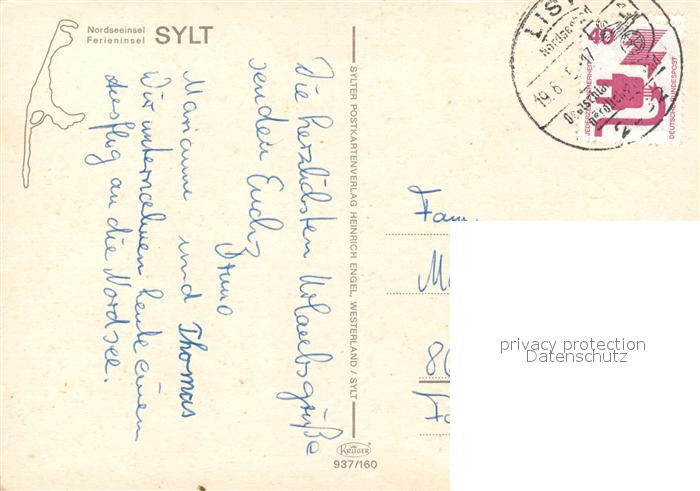 Nordseeinsel
Ferieninsel SYLT
Die herzlichsten Urlaubsgrüße
senden Euch
Bruno
Mariann und Thomas
Wir unternehmen heute einen
Ausflug an die Nordsee.
SYLTER POSTKARTENVERLAG HEINRICH ENGEL, WESTERLAND / SYLT
KRÜGER
937/160
LIS
Nordseebad
19.6.
40
JEDERZEIT SICHERHEIT
DEUTSCHE BUNDESPOST
Fam.
86
privacy protection
Datenschutz